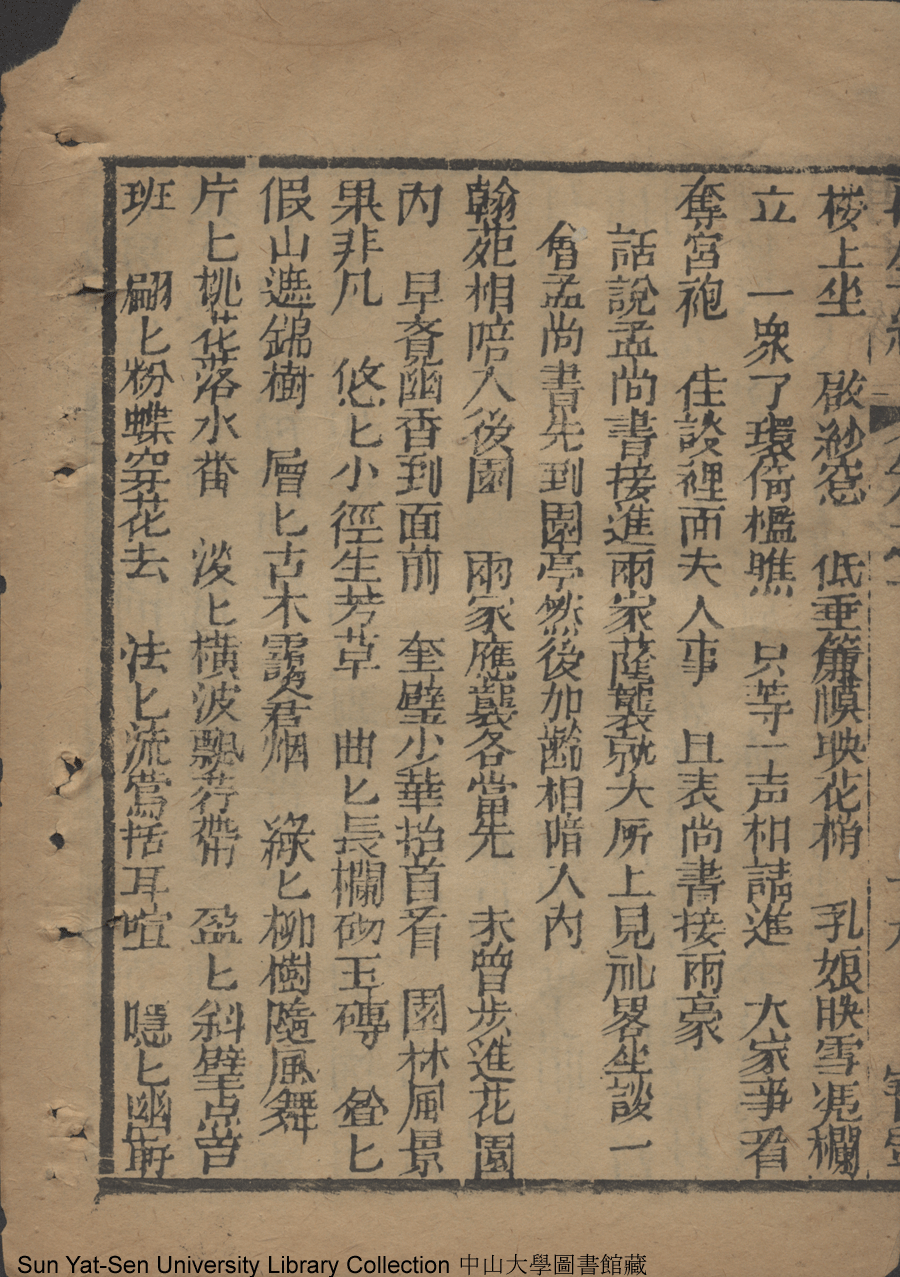 楼上坐 啟紗窓 低垂簾幙映花梢 乳娘映雪凴欄
立 一衆了環倚檻瞧 只等一声相請進 大家爭看
奪宮袍 佳談裡面夫人事 且表尚書接兩豪
話說孟尚書接進兩家蔭襲就大所上見礼畧坐談一
會孟尚書先到園亭然後加齡相暗入內
翰苑相陪入後園 兩家應襲各當先 未曾步進花園
內 早覔幽香到面前 奎璧少華抬首看 園林風景
果非凡 悠匕小徑生芳草 曲匕長欄砌玉磚 叠匕
假山遮錦樹 層匕古木靄蒼烟 綠匕柳樹隨風舞
片匕桃花落水畨 淡匕橫波飄荇帶 盈匕斜壁点苔
班 翩匕粉蝶穿花去 法匕流鶯括耳喧 隱匕幽
Sun Yat-Sen University Library Collection 中山大學圖書館藏